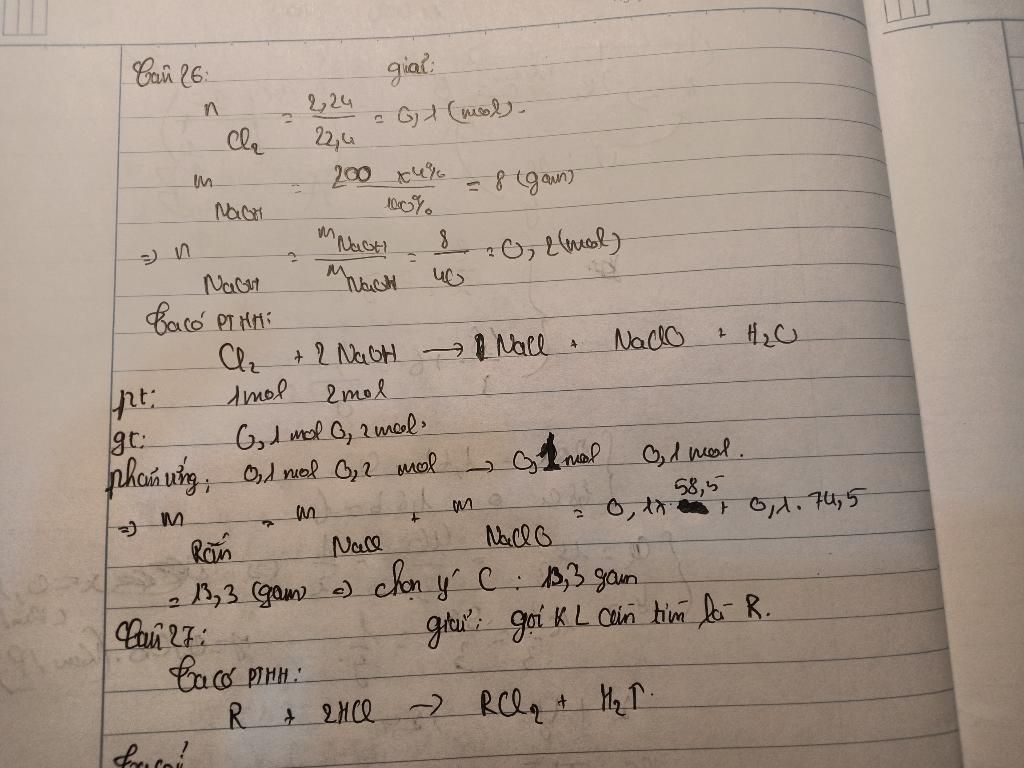 Câu 26: giải:
n Cl₂ = 2,24 / 22,4 = 0,1 (mol).
m NaOH = 200 x 4% / 100% = 8 (gam)
=> n NaOH = m NaOH / M NaOH = 8 / 40 = 0,2 (mol)
Ta có PTHH:
Cl₂ + 2 NaOH → 1 NaCl + NaClO + H₂O
pt: 1mol 2mol
gt: 0,1 mol 0,2 mol
phản ứng: 0,1 mol 0,2 mol → 0,1 mol 0,1 mol.
=> m Rắn = m NaCl + m NaClO = 0,1 x 58,5 + 0,1 . 74,5
= 13,3 (gam) => chọn ý C. 13,3 gam
Câu 27: giải: gọi KL cần tìm là R.
Ta có PTHH:
R + 2HCl → RCl₂ + H₂↑.